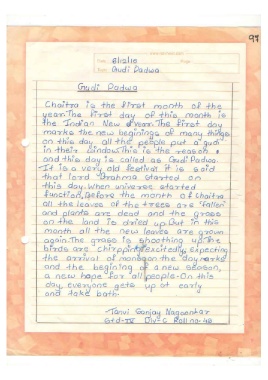 97
Gudi Padwa
Gudi Padwa
Chaitra is the first month of the
year.The first day of this month is
the Indian New Year.The first day
marks the new beginings of many things
on this day all the people put a gudi
in their window.This is the reason
and this day is called as Gudi Padwa.
It is a very old festival it is said
that lord Brahma started on
this day.When universe started
function,Before the month of Chaitra
all the leaves of the trees are fallen
and plants are dead and the grass
on the land is dried up.But in this
month all the new leaves are grown
again.The grass is shooting up the
birds are chirpping excitedly expecting
the arrival of monsoon the day marks
and the begining of a new season,
a new hope for all people.On this
day everyone gets up at early
and take bath.
Tanvi Sanjay
Std-IV Div-C Roll no-48